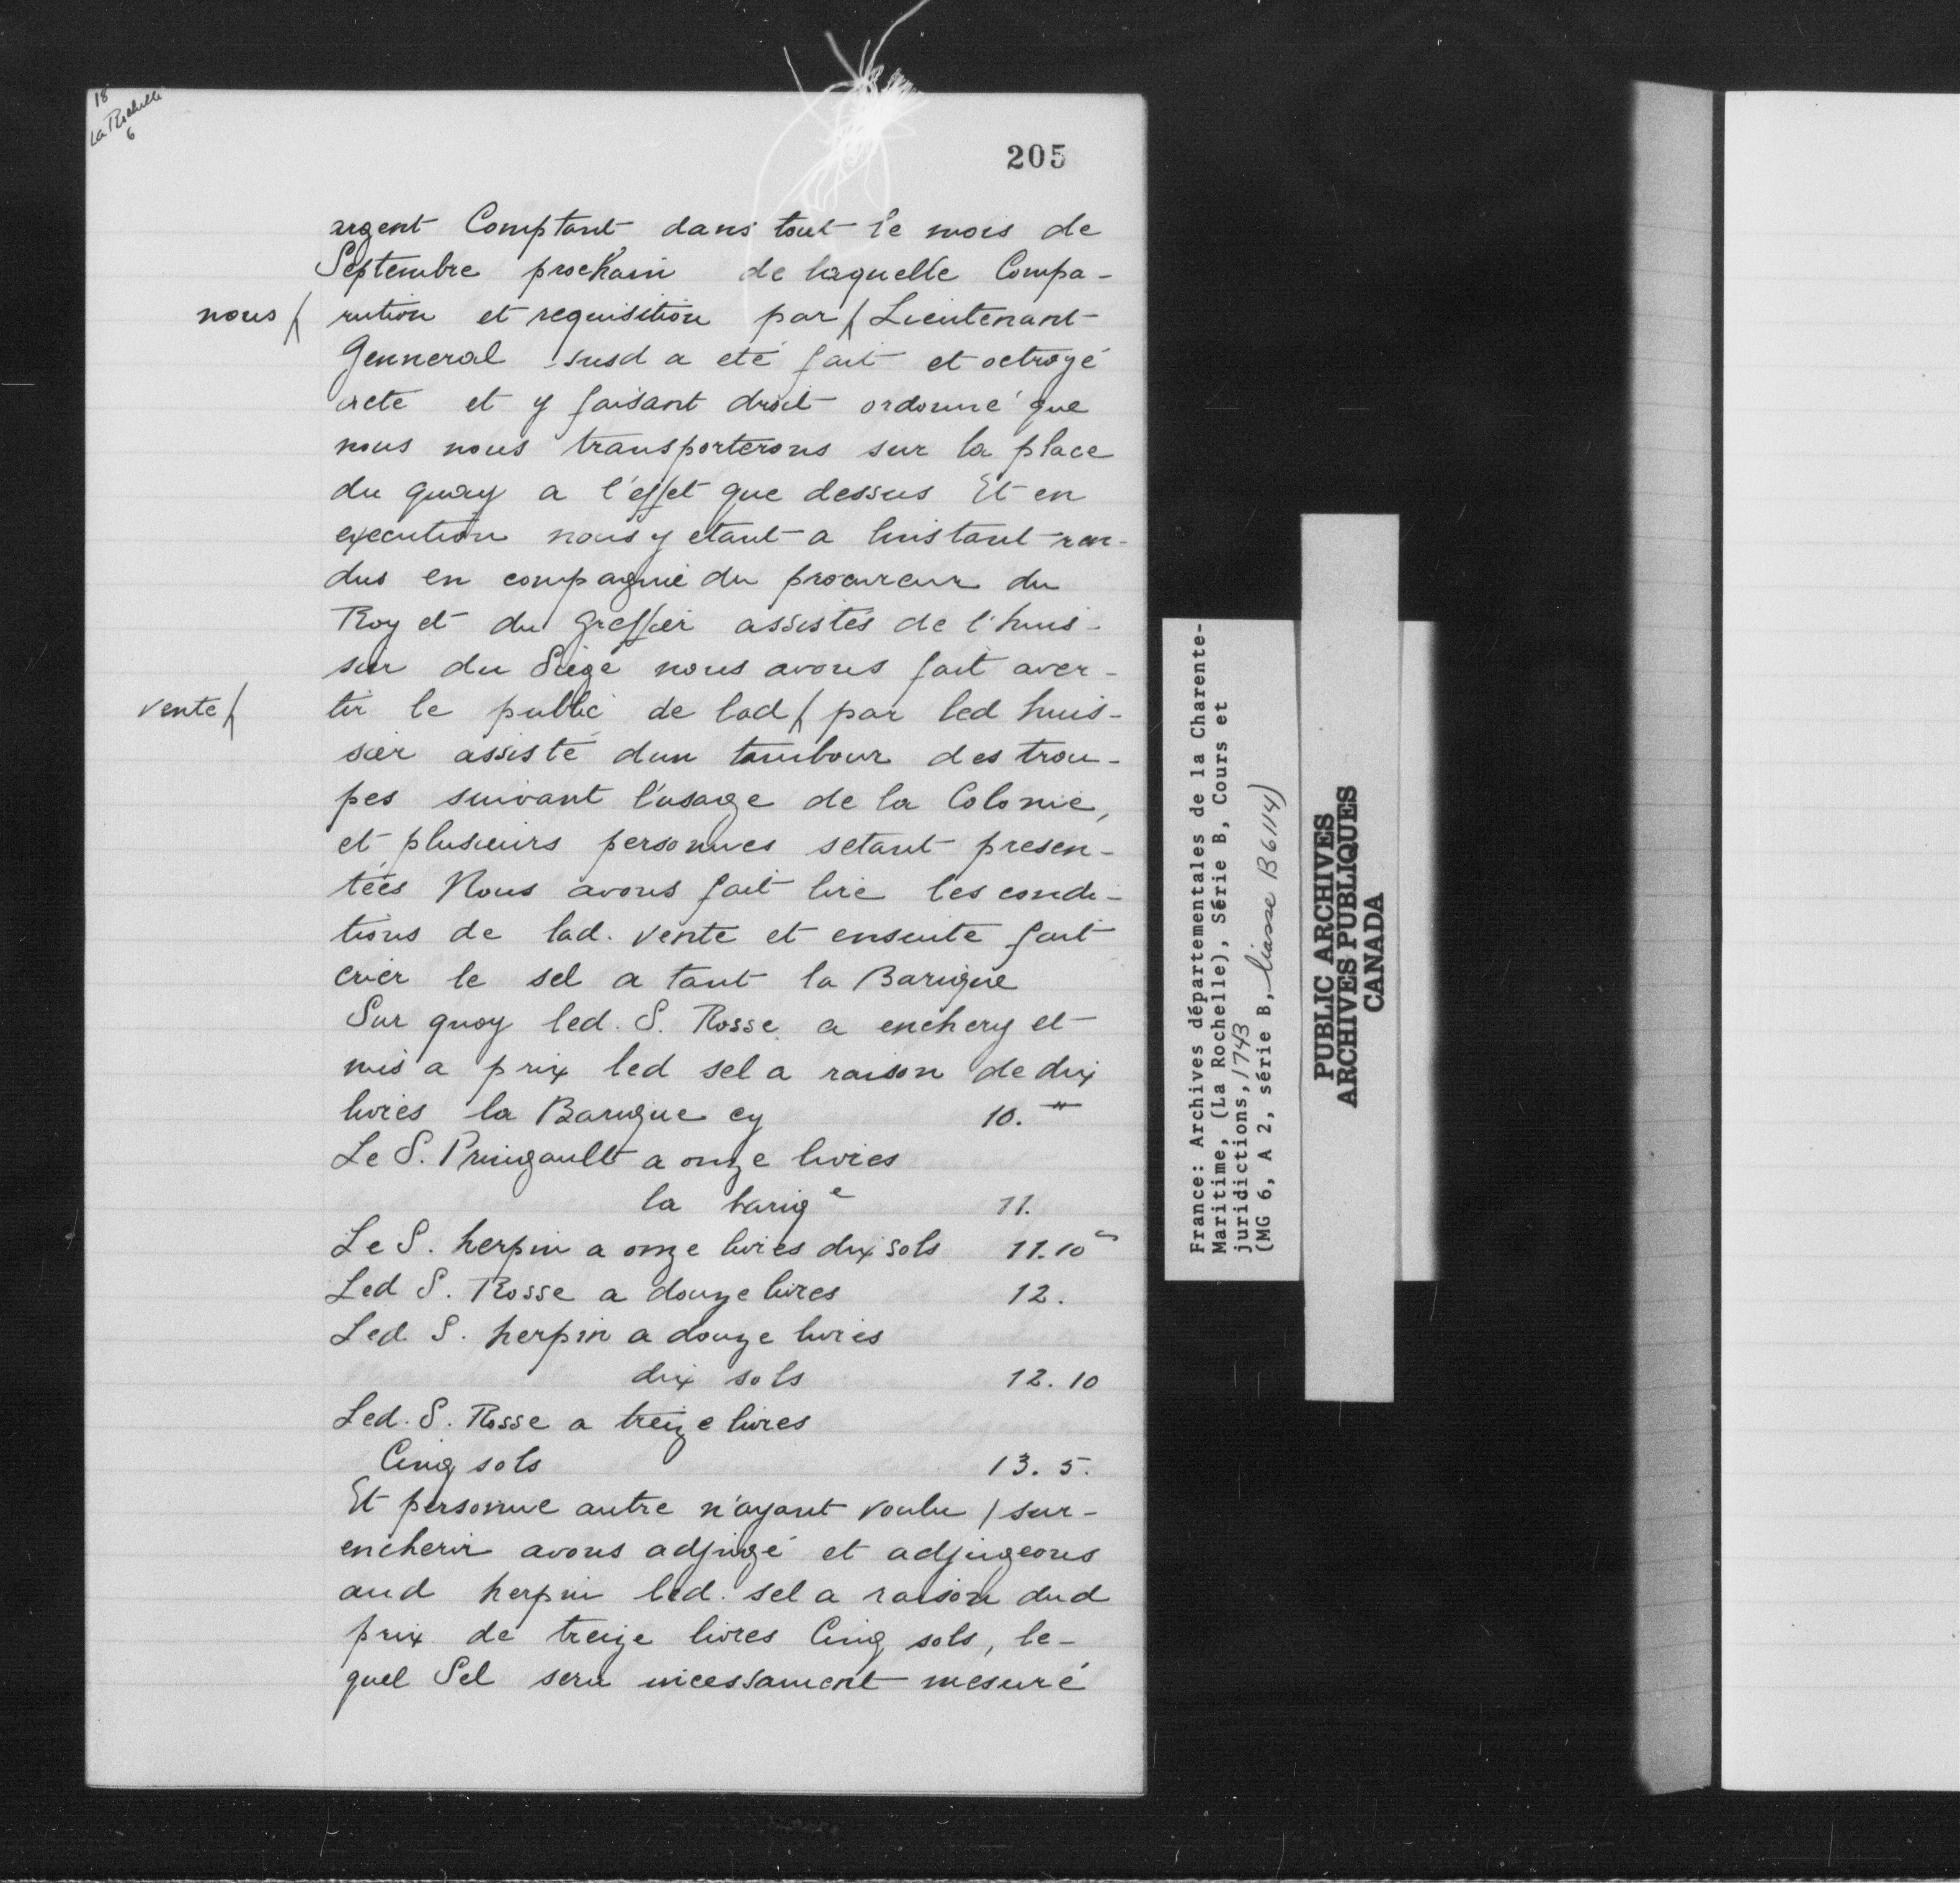 18
La Rochelle
6
205
argent Comptant dans tout le mois de
Septembre prochain de laquelle Compa-
nous ∤ rution et requisition par ∤ Lieutenant
Genneral susd a eté fait et octroyé
acte et y faisant droit ordonné que
nous nous transporterons sur la place
du quay a l'effet que dessus Et en
execution nous y etant a linstant ren-
dus en compagnie du procureur du
Roy et du Greffier assistés de l'huis-
sier du Siège nous avons fait aver-
vente ∤ tir le public de lad ∤ par led huis-
sier assisté dun tambour des trou-
pes suivant l'usage de la Colonie,
et plusieurs personnes setant presen-
tées Nous avons fait lire les condi-
tions de lad. vente et ensuite fait
crier le sel a tant la Barique
Sur quoy led. S. Rosse a enchery et
mis a prix led sel a raison de dix
livres la Barique cy 10.
Le S. Pringault a onze livres
la bariq e 11.
Le S. herpin a onze livres dix sols 11.10 s
Led S. Rosse a douze livres 12.
Led. S. herpin a douze livres
dix sols 12.10
Led. S. Rosse a treize livres
Cinq sols 13.5.
Et personne autre n'ayant voulu / sur-
encherir avons adjugé et adjugeons
aud herpin led. sel a raison dud
prix de treize livres Cinq sols, le-
quel Sel sera incessament mesuré
France: Archives départementales de la Charente-
Maritime, (La Rochelle), Série B, Cours et
juridictions, 1743
(MG 6, A 2, série B, liasse B 6114)
PUBLIC ARCHIVES
ARCHIVES PUBLIQUES
CANADA